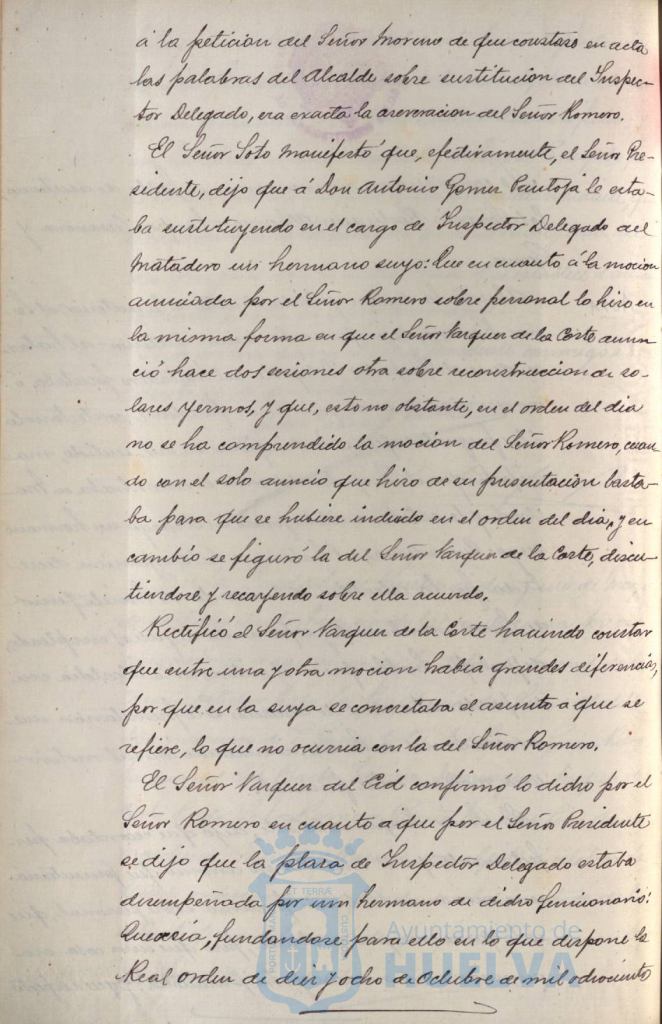 á la petición del Señor Moreno de que constase en acta
las palabras del Alcalde sobre sustitucion del Inspec-
tor Delegado, era exacta la aseveracion del Señor Romero.
El Señor Soto manifestó que, efectivamente, el Señor Pre-
sidente, dijo que á Don Antonio Gomez Pantoja le esta-
ba sustituyendo en el cargo de Inspector Delegado del
Matadero un hermano suyo: Que en cuanto á la mocion
anunciada por el Señor Romero sobre personal lo hizo en
la misma forma en que el Señor Vazquez de la Corte anun
ció hace dos sesiones otra sobre reconstruccion de so-
lares yermos, y que, esto no obstante, en el orden del dia
no se ha comprendido la mocion del Señor Romero, cuan
do con el solo anuncio que hizo de su presentación basta-
ba para que se hubiere incluido en el orden del dia, y en
cambio se figuró la del Señor Vazquez de la Corte, discu-
tiendose y recayendo sobre ella acuerdo.
Rectificó el Señor Vazquez de la Corte haciendo constar
que entre una y otra mocion habia grandes diferencias,
por que en la suya se concretaba el asunto á que se
refiere, lo que no ocurria con la del Señor Romero.
El Señor Vazquez del Cid confirmó lo dicho por el
Señor Romero en cuanto á que por el Señor Presidente
se dijo que la plaza de Inspector Delegado estaba
desempeñada por un hermano de dicho funcionario:
fundandose para ello en lo que dispone la
Real orden de diez y ocho de Octubre de mil ochociento
PORTUS MARIS ET TERRÆ CUSTODIA
Ayuntamiento de
HUELVA